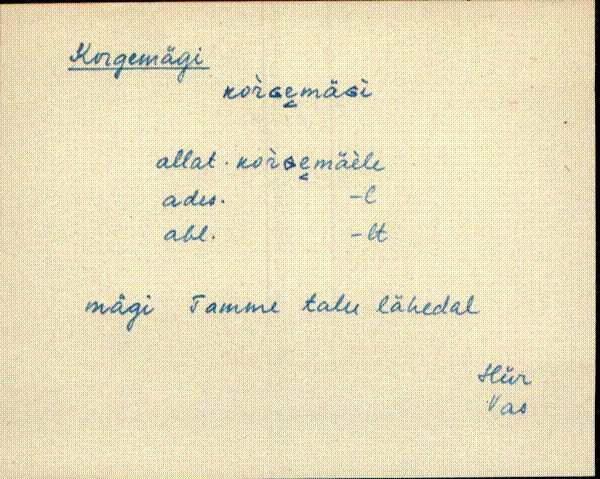 Korgemägi
kòrɢe̬mäɢì
allat. kòrɢe̬mäèle
ades. -l
abl. -lt
mägi Tamme talu lähedal
Hür
Vas